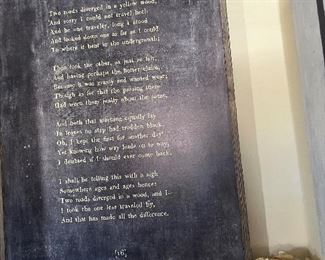 Two roads diverged in a yellow wood,
And sorry I could not travel both
And be one traveler, long I stood
And looked down one as far as I could
To where it bent in the undergrowth;
Then took the other, as just as fair,
And having perhaps the better claim,
Because it was grassy and wanted wear;
Though as for that the passing there
Had worn them really about the same,
And both that morning equally lay
In leaves no step had trodden black.
Oh, I kept the first for another day!
Yet knowing how way leads on to way,
I doubted if I should ever come back.
I shall be telling this with a sigh
Somewhere ages and ages hence:
Two roads diverged in a wood, and I—
I took the one less traveled by,
And that has made all the difference.